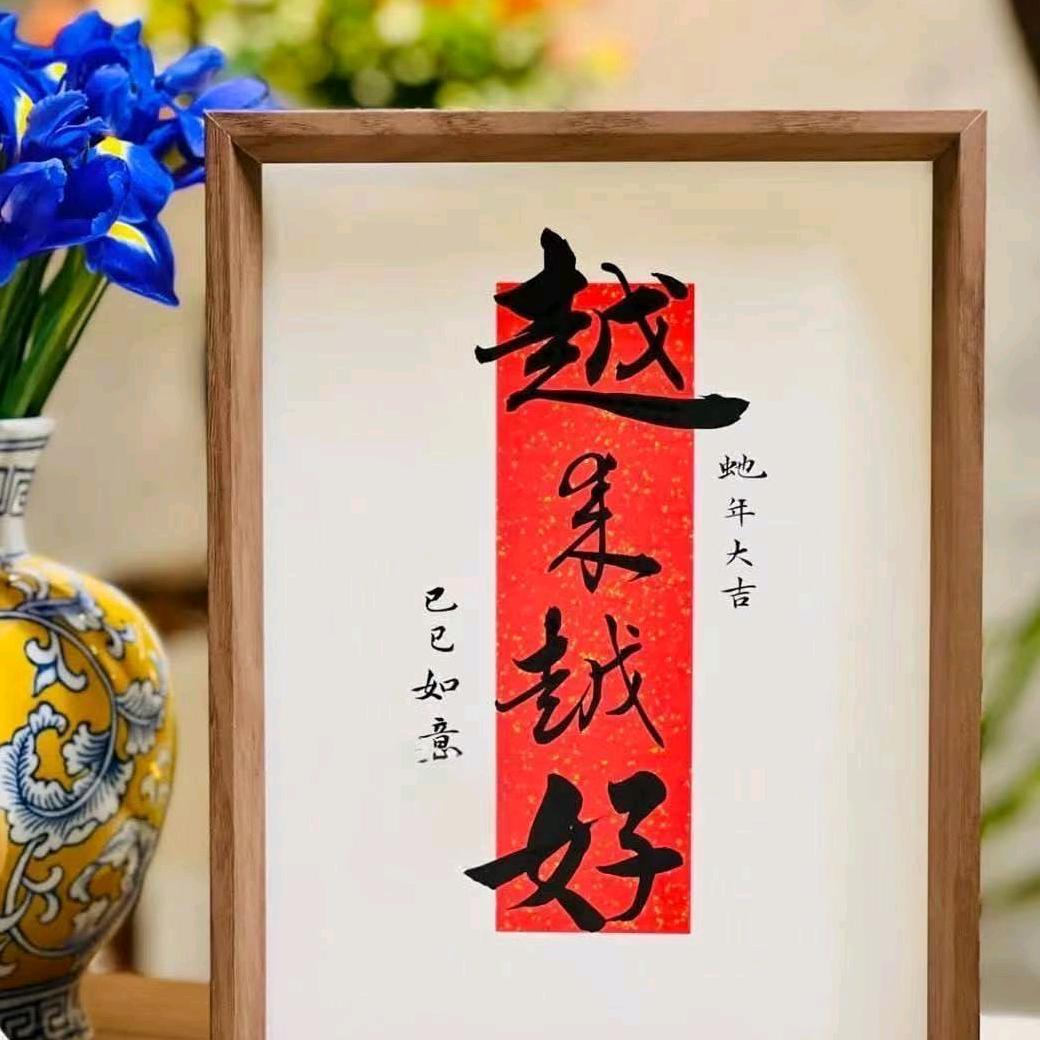 蛇年大吉
越来越好
巳巳如意